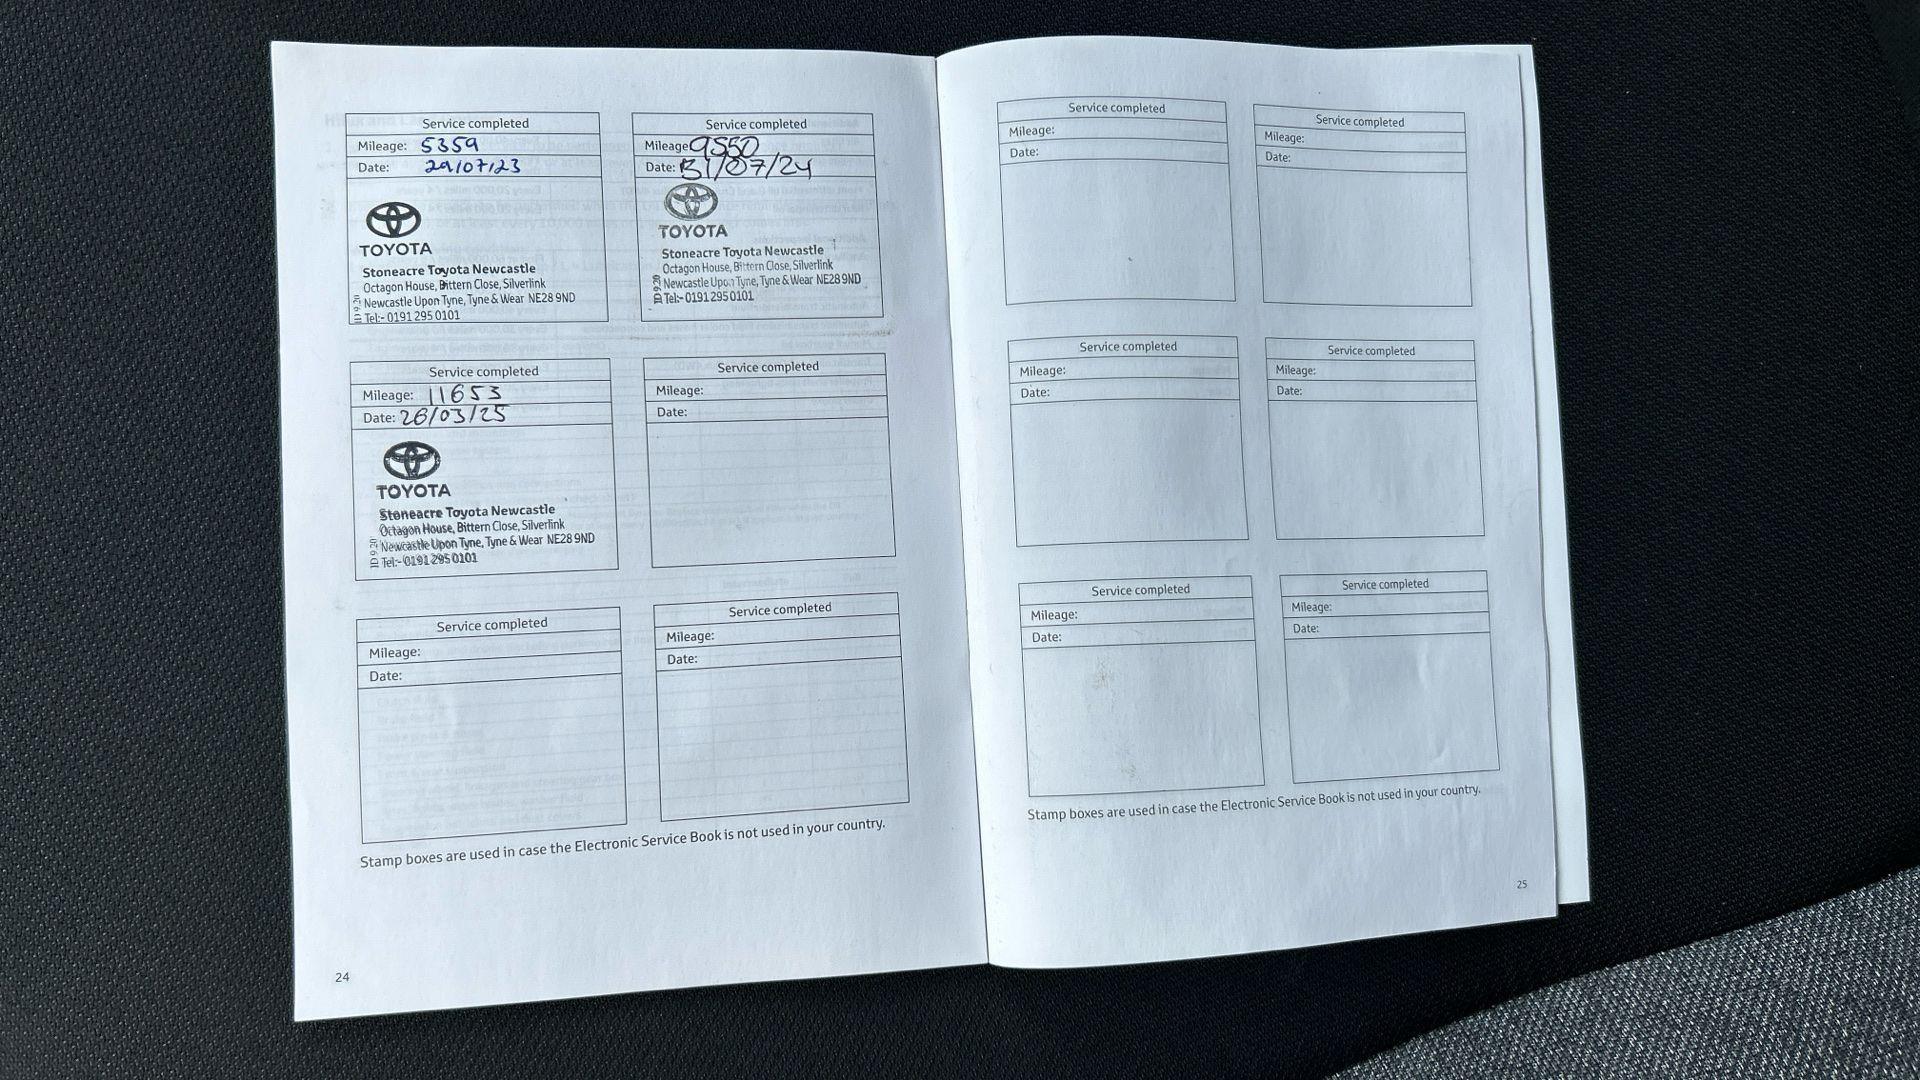 Service completed
Mileage: 5359
Date: 29/07/23
TOYOTA
Stoneacre Toyota Newcastle
Octagon House, Bittern Close, Silverlink
Newcastle Upon Tyne, Tyne & Wear NE28 9ND
Tel:- 0191 295 0101
ID 9.20
Service completed
Mileage: 9550
Date: 31/07/24
TOYOTA
Stoneacre Toyota Newcastle
Octagon House, Bittern Close, Silverlink
Newcastle Upon Tyne, Tyne & Wear NE28 9ND
Tel:- 0191 295 0101
ID 9.20
Service completed
Mileage: 11653
Date: 26/03/25
TOYOTA
Stoneacre Toyota Newcastle
Octagon House, Bittern Close, Silverlink
Newcastle Upon Tyne, Tyne & Wear NE28 9ND
Tel:- 0191 295 0101
ID 9.20
Service completed
Mileage:
Date:
Service completed
Mileage:
Date:
Service completed
Mileage:
Date:
Stamp boxes are used in case the Electronic Service Book is not used in your country.
24
Service completed
Mileage:
Date:
Service completed
Mileage:
Date:
Service completed
Mileage:
Date:
Service completed
Mileage:
Date:
Service completed
Mileage:
Date:
Service completed
Mileage:
Date:
Stamp boxes are used in case the Electronic Service Book is not used in your country.
25